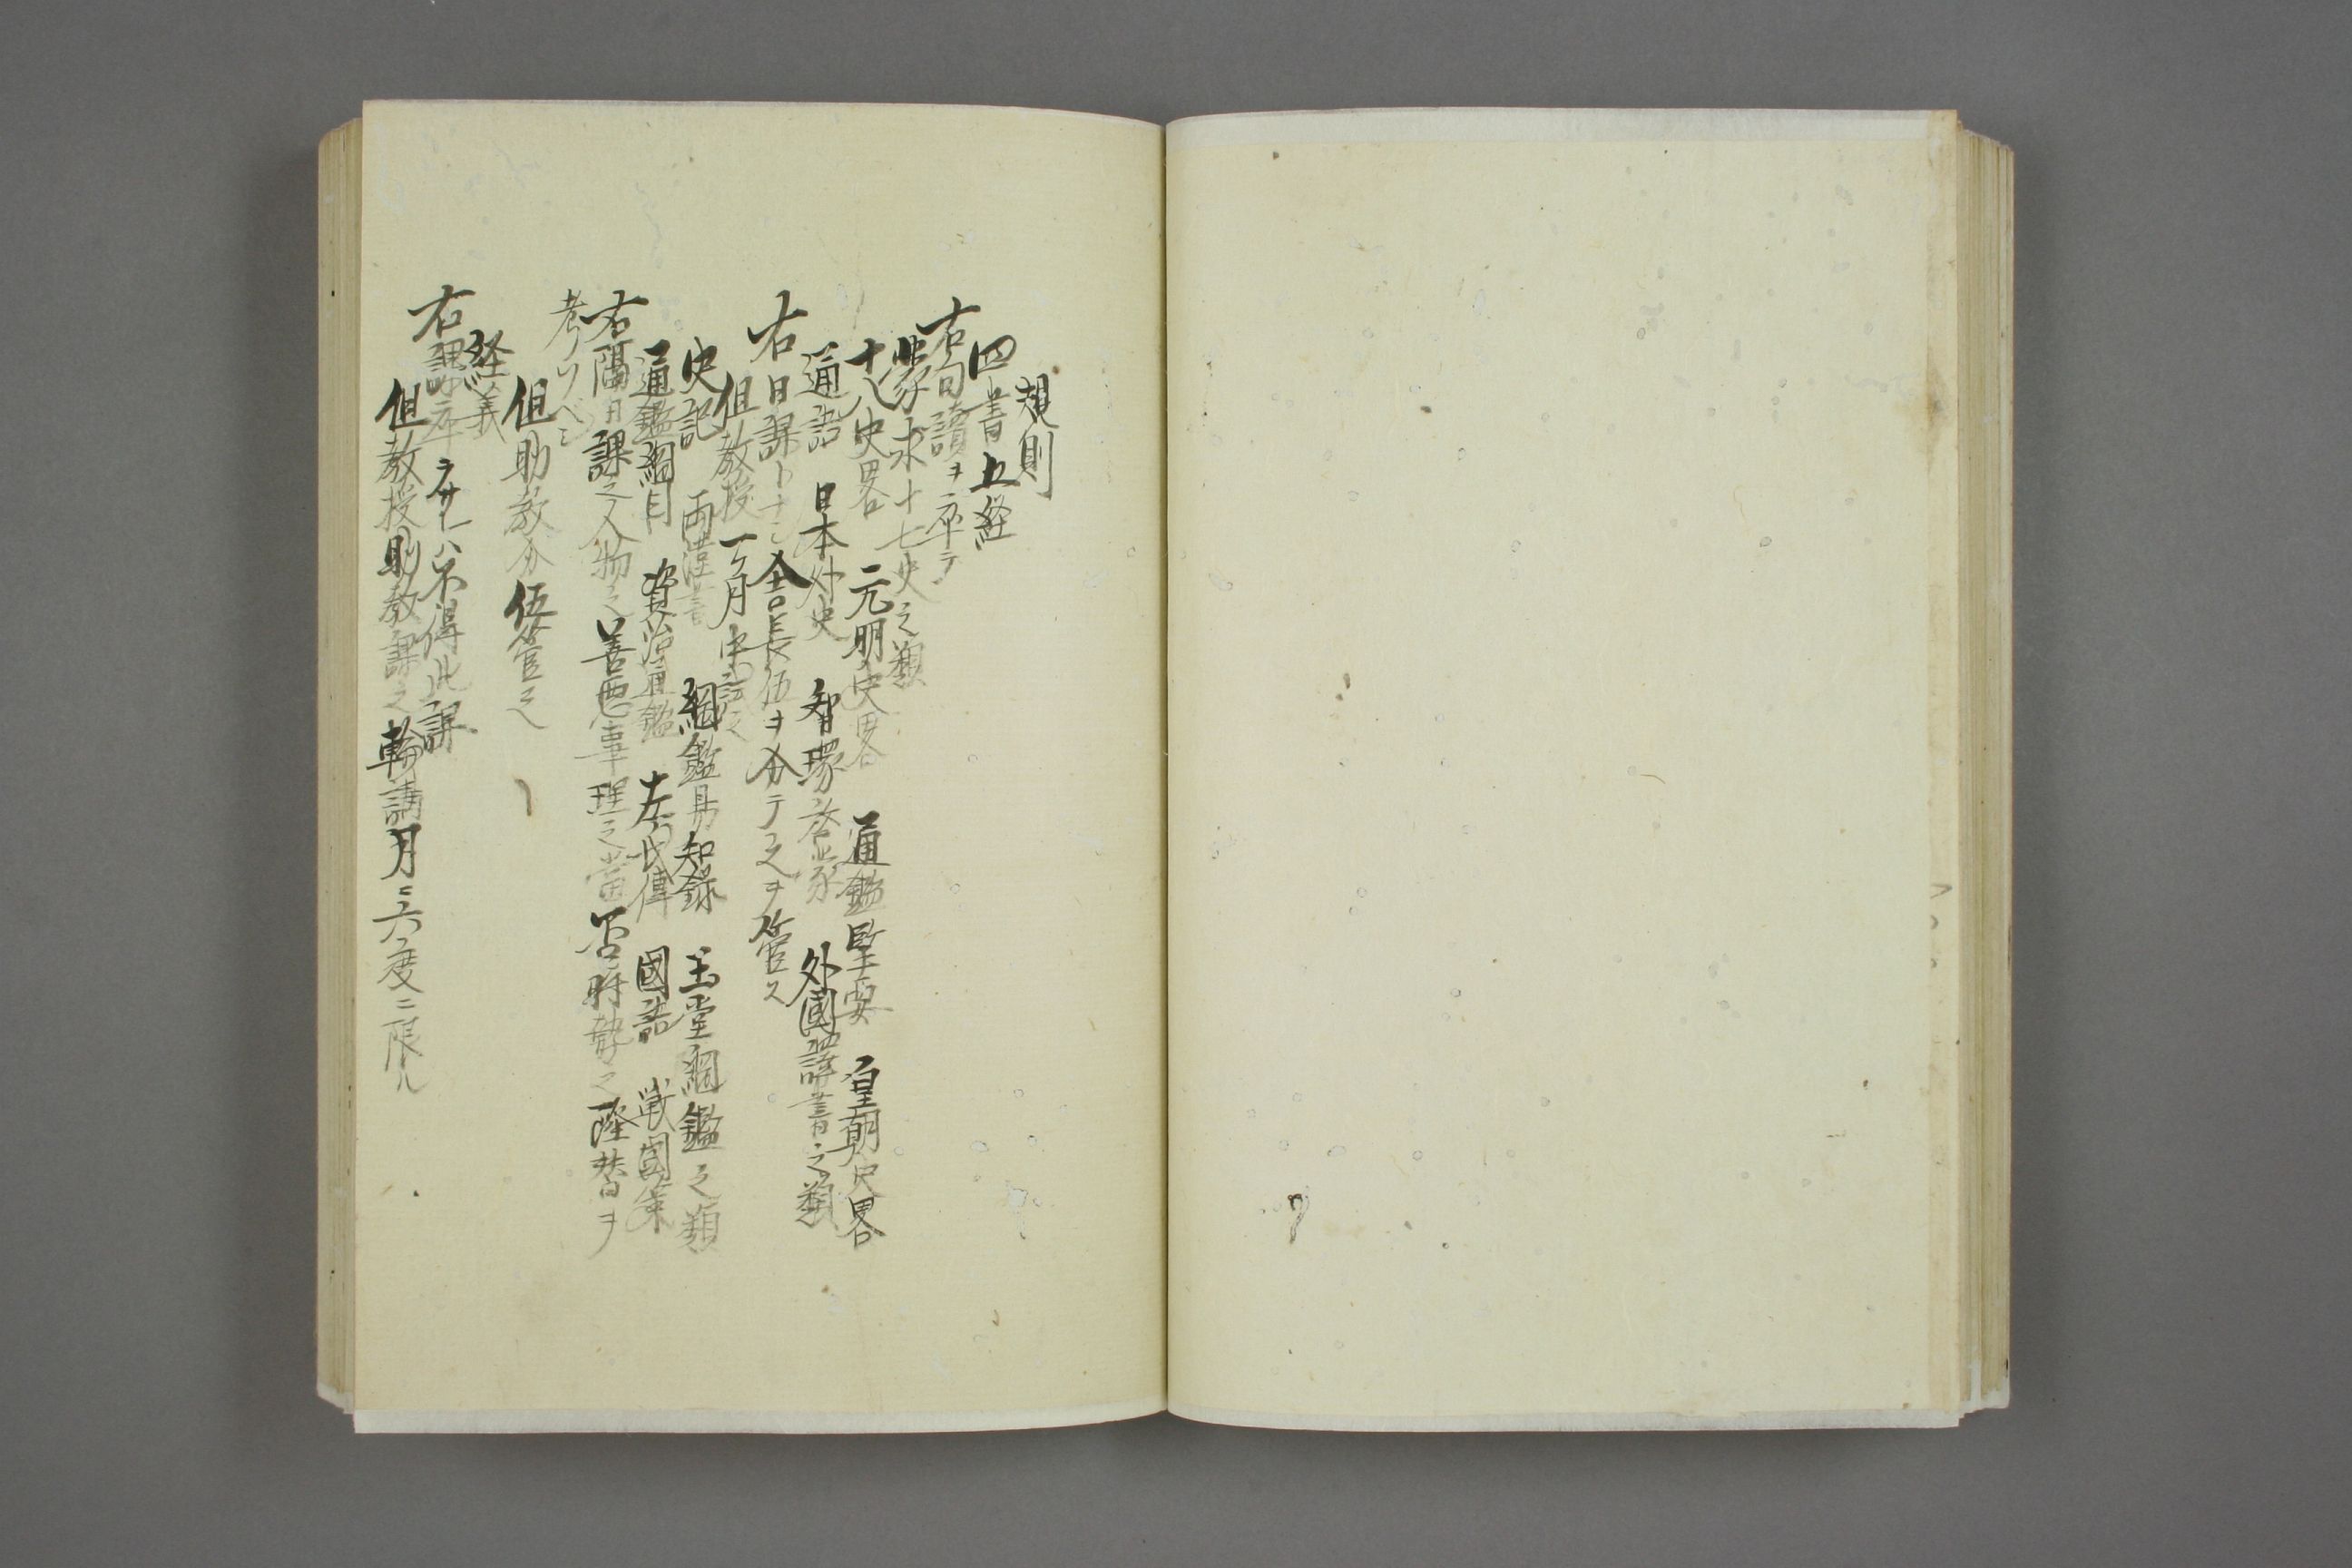 規則
四書五経
右句讀ヲ卒テ
蒙求十七史之類
十八史畧 元明史畧 通鑑堅要 皇朝史畧
通語 日本外史 智環啓蒙 外國譯書之類
右日課トナシ舎長伍ヲ分テ之ヲ管ス
但教授一ケ月中
史記 両漢書 綱鑑易知録 玉堂綱鑑之類
通鑑綱目 資治通鑑 左氏傳 國語 戦國策
右隔日課之人物之善悪事理之當否時勢之隆替ヲ
考フベシ
但助教分伍管之
経義
右課卒ラサレハ不得此課
但教授助教課之輪講月ニ六度ニ限ル